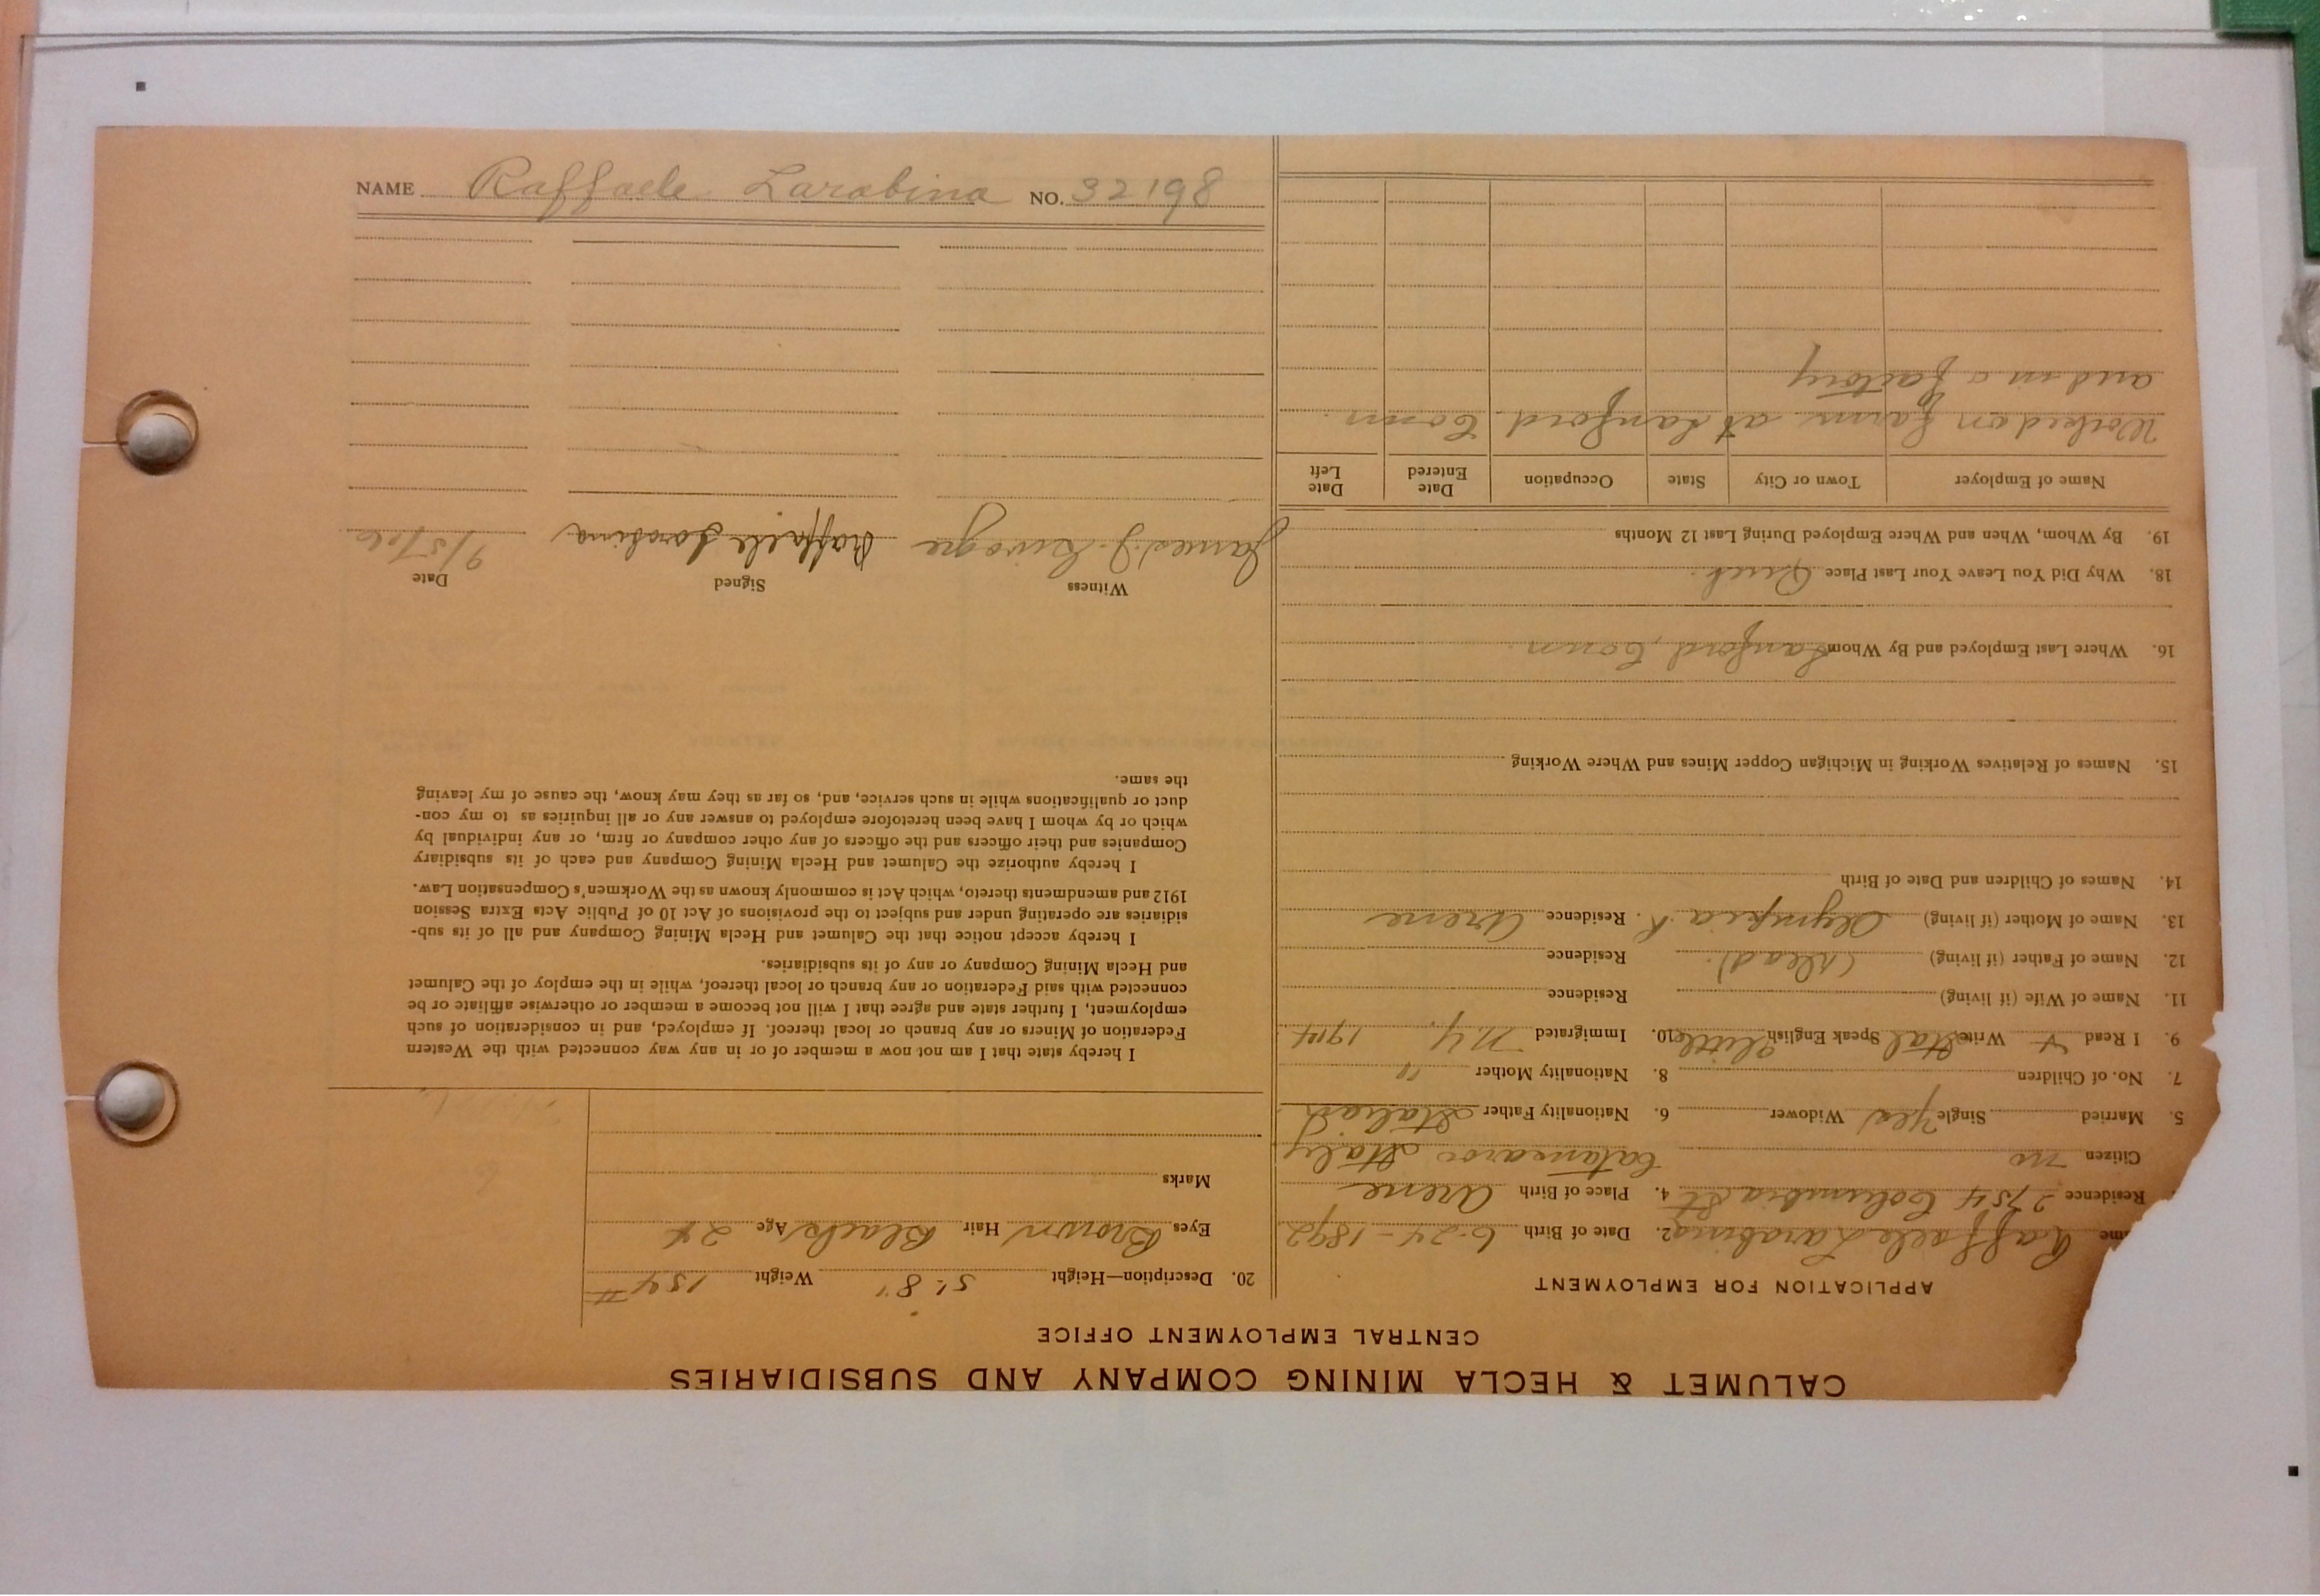 NAME Raffaele Larobina NO. 32198
CALUMET & HECLA MINING COMPANY AND SUBSIDIARIES
CENTRAL EMPLOYMENT OFFICE
APPLICATION FOR EMPLOYMENT
me Raffaele Larobina 2. Date of Birth 6-24-1892
Residence 2754 Columbia St 4. Place of Birth Arene
Citizen no Catanzaro Italy
5. Married Single Yes Widower 6. Nationality Father Italian
7. No. of Children 8. Nationality Mother "
9. I Read + Write Ital Speak English Little 10. Immigrated N.Y. 1914
11. Name of Wife (if living) Residence
12. Name of Father (if living) (dead) Residence
13. Name of Mother (if living) Olympia R. Residence Arene
14. Names of Children and Date of Birth
15. Names of Relatives Working in Michigan Copper Mines and Where Working
16. Where Last Employed and By Whom Sanford, Conn.
18. Why Did You Leave Your Last Place Quit.
19. By Whom, When and Where Employed During Last 12 Months
Name of Employer Town or City State Occupation Date Entered Date Left
Worked on farm at Sanford Conn.
and in a factory
20. Description—Height 5' 8" Weight 154 #
Eyes Brown Hair Black Age 24
Marks
I hereby state that I am not now a member of or in any way connected with the Western
Federation of Miners or any branch or local thereof. If employed, and in consideration of such
employment, I further state and agree that I will not become a member or otherwise affiliate or be
connected with said Federation or any branch or local thereof, while in the employ of the Calumet
and Hecla Mining Company or any of its subsidiaries.
I hereby accept notice that the Calumet and Hecla Mining Company and all of its sub-
sidiaries are operating under and subject to the provisions of Act 10 of Public Acts Extra Session
1912 and amendments thereto, which Act is commonly known as the Workmen's Compensation Law.
I hereby authorize the Calumet and Hecla Mining Company and each of its subsidiary
Companies and their officers and the officers of any other company or firm, or any individual by
which or by whom I have been heretofore employed to answer any or all inquiries as to my con-
duct or qualifications while in such service, and, so far as they may know, the cause of my leaving
the same.
Witness Signed Date
James J. Raffaele Larobina 9/5/16